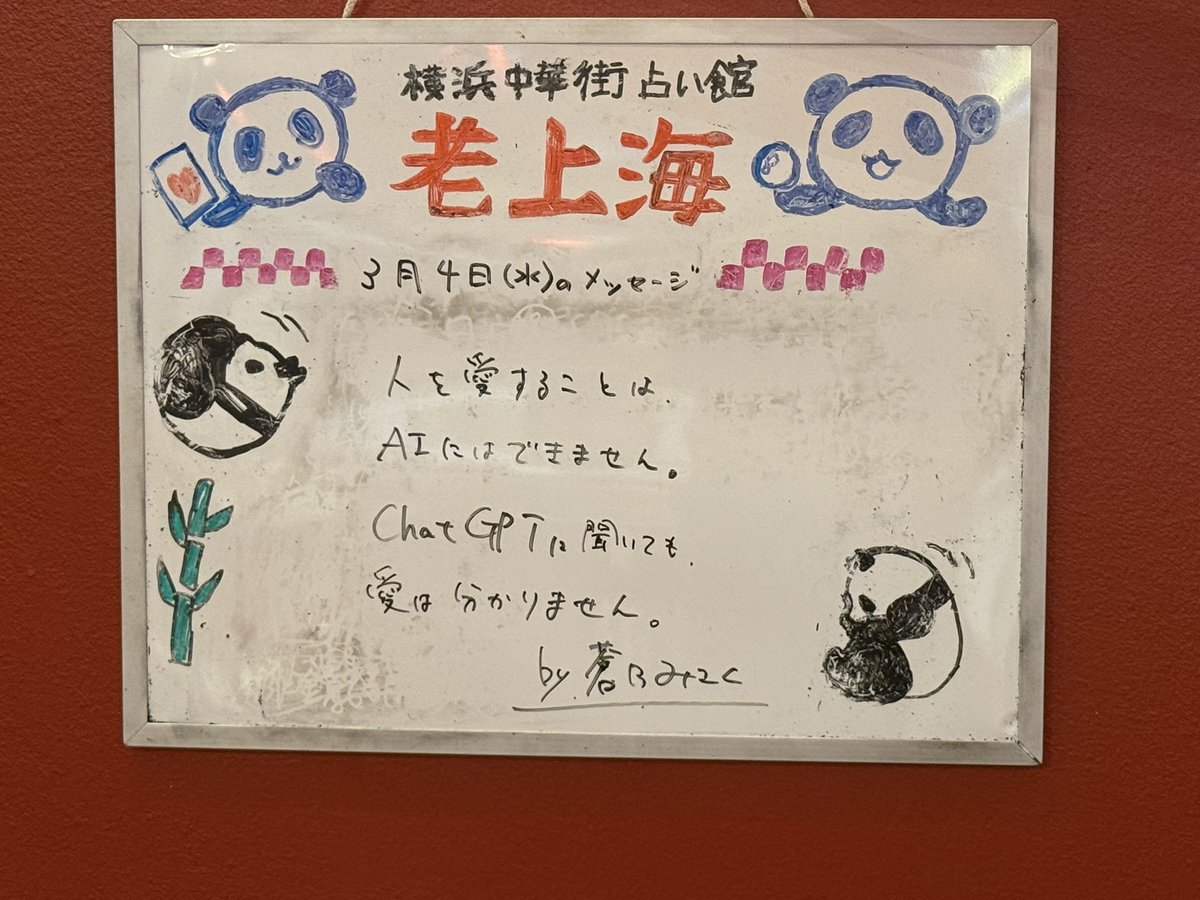 横浜中華街 占い館
老上海
3月4日(水)のメッセージ
人を愛することは、
AIにはできません。
ChatGPTに聞いても、
愛は分かりません。
by 蒼